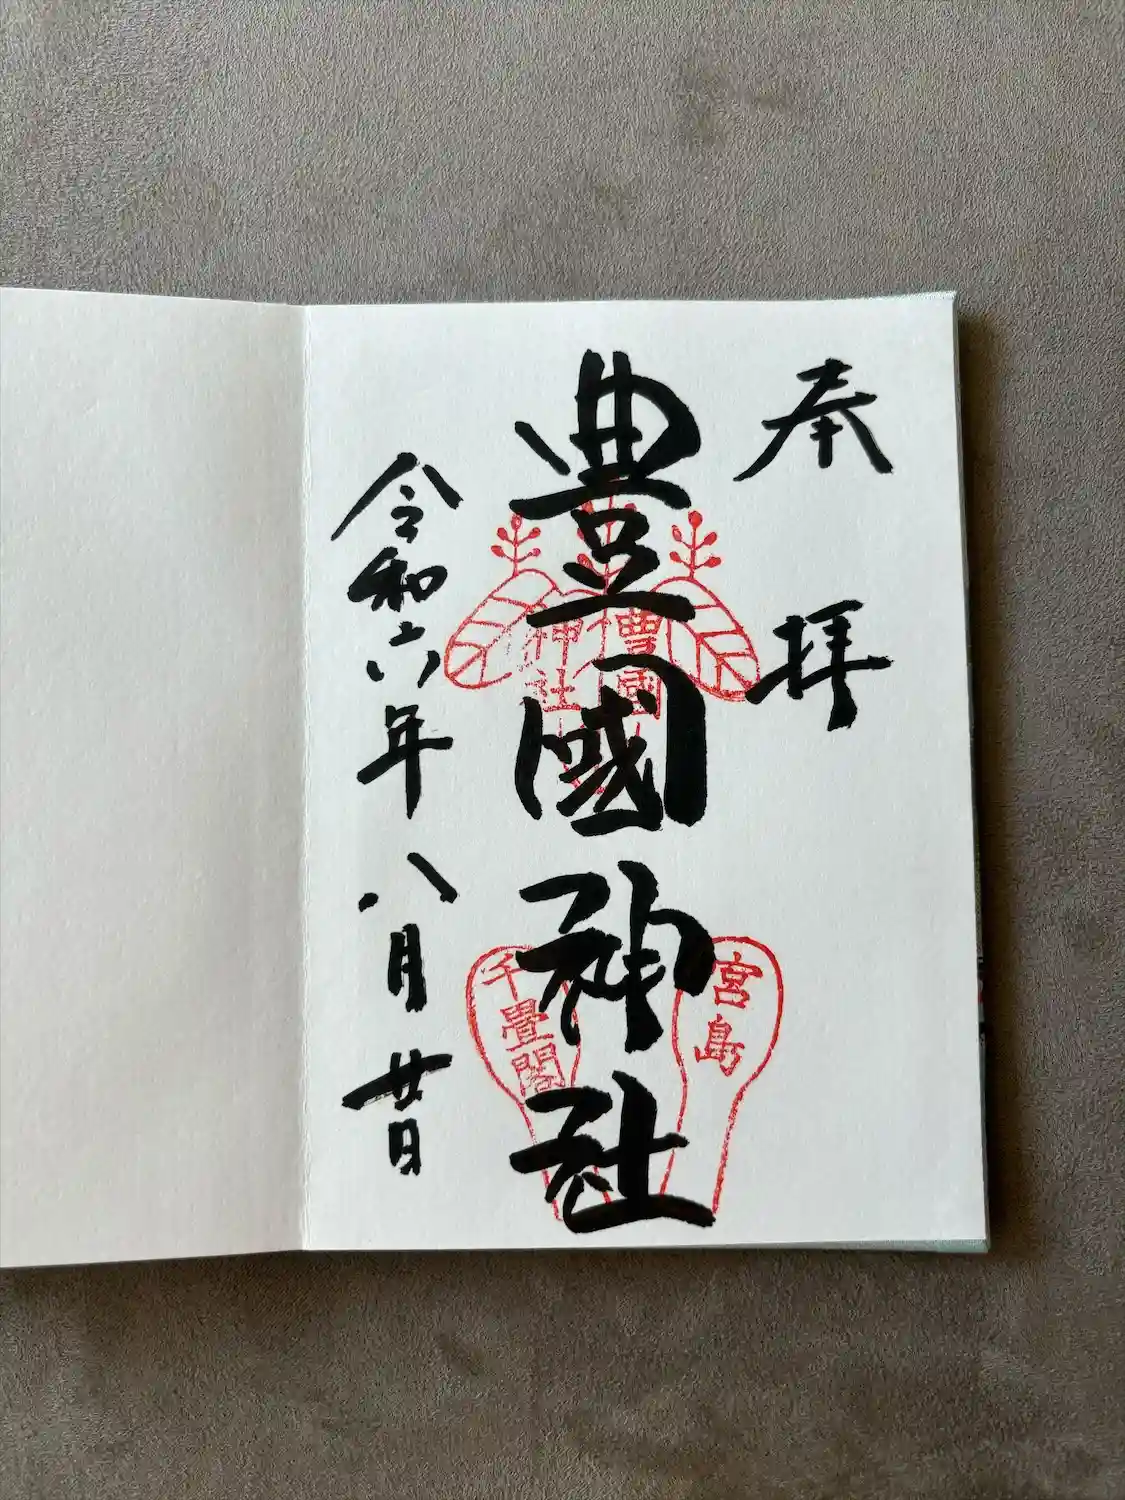 奉拝
豊國神社
令和六年八月廿日
豊國
神社
宮島
千畳閣